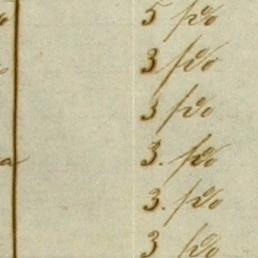 5 p%
3 p%
3 p%
a 3. p%
3. p%
3 p%